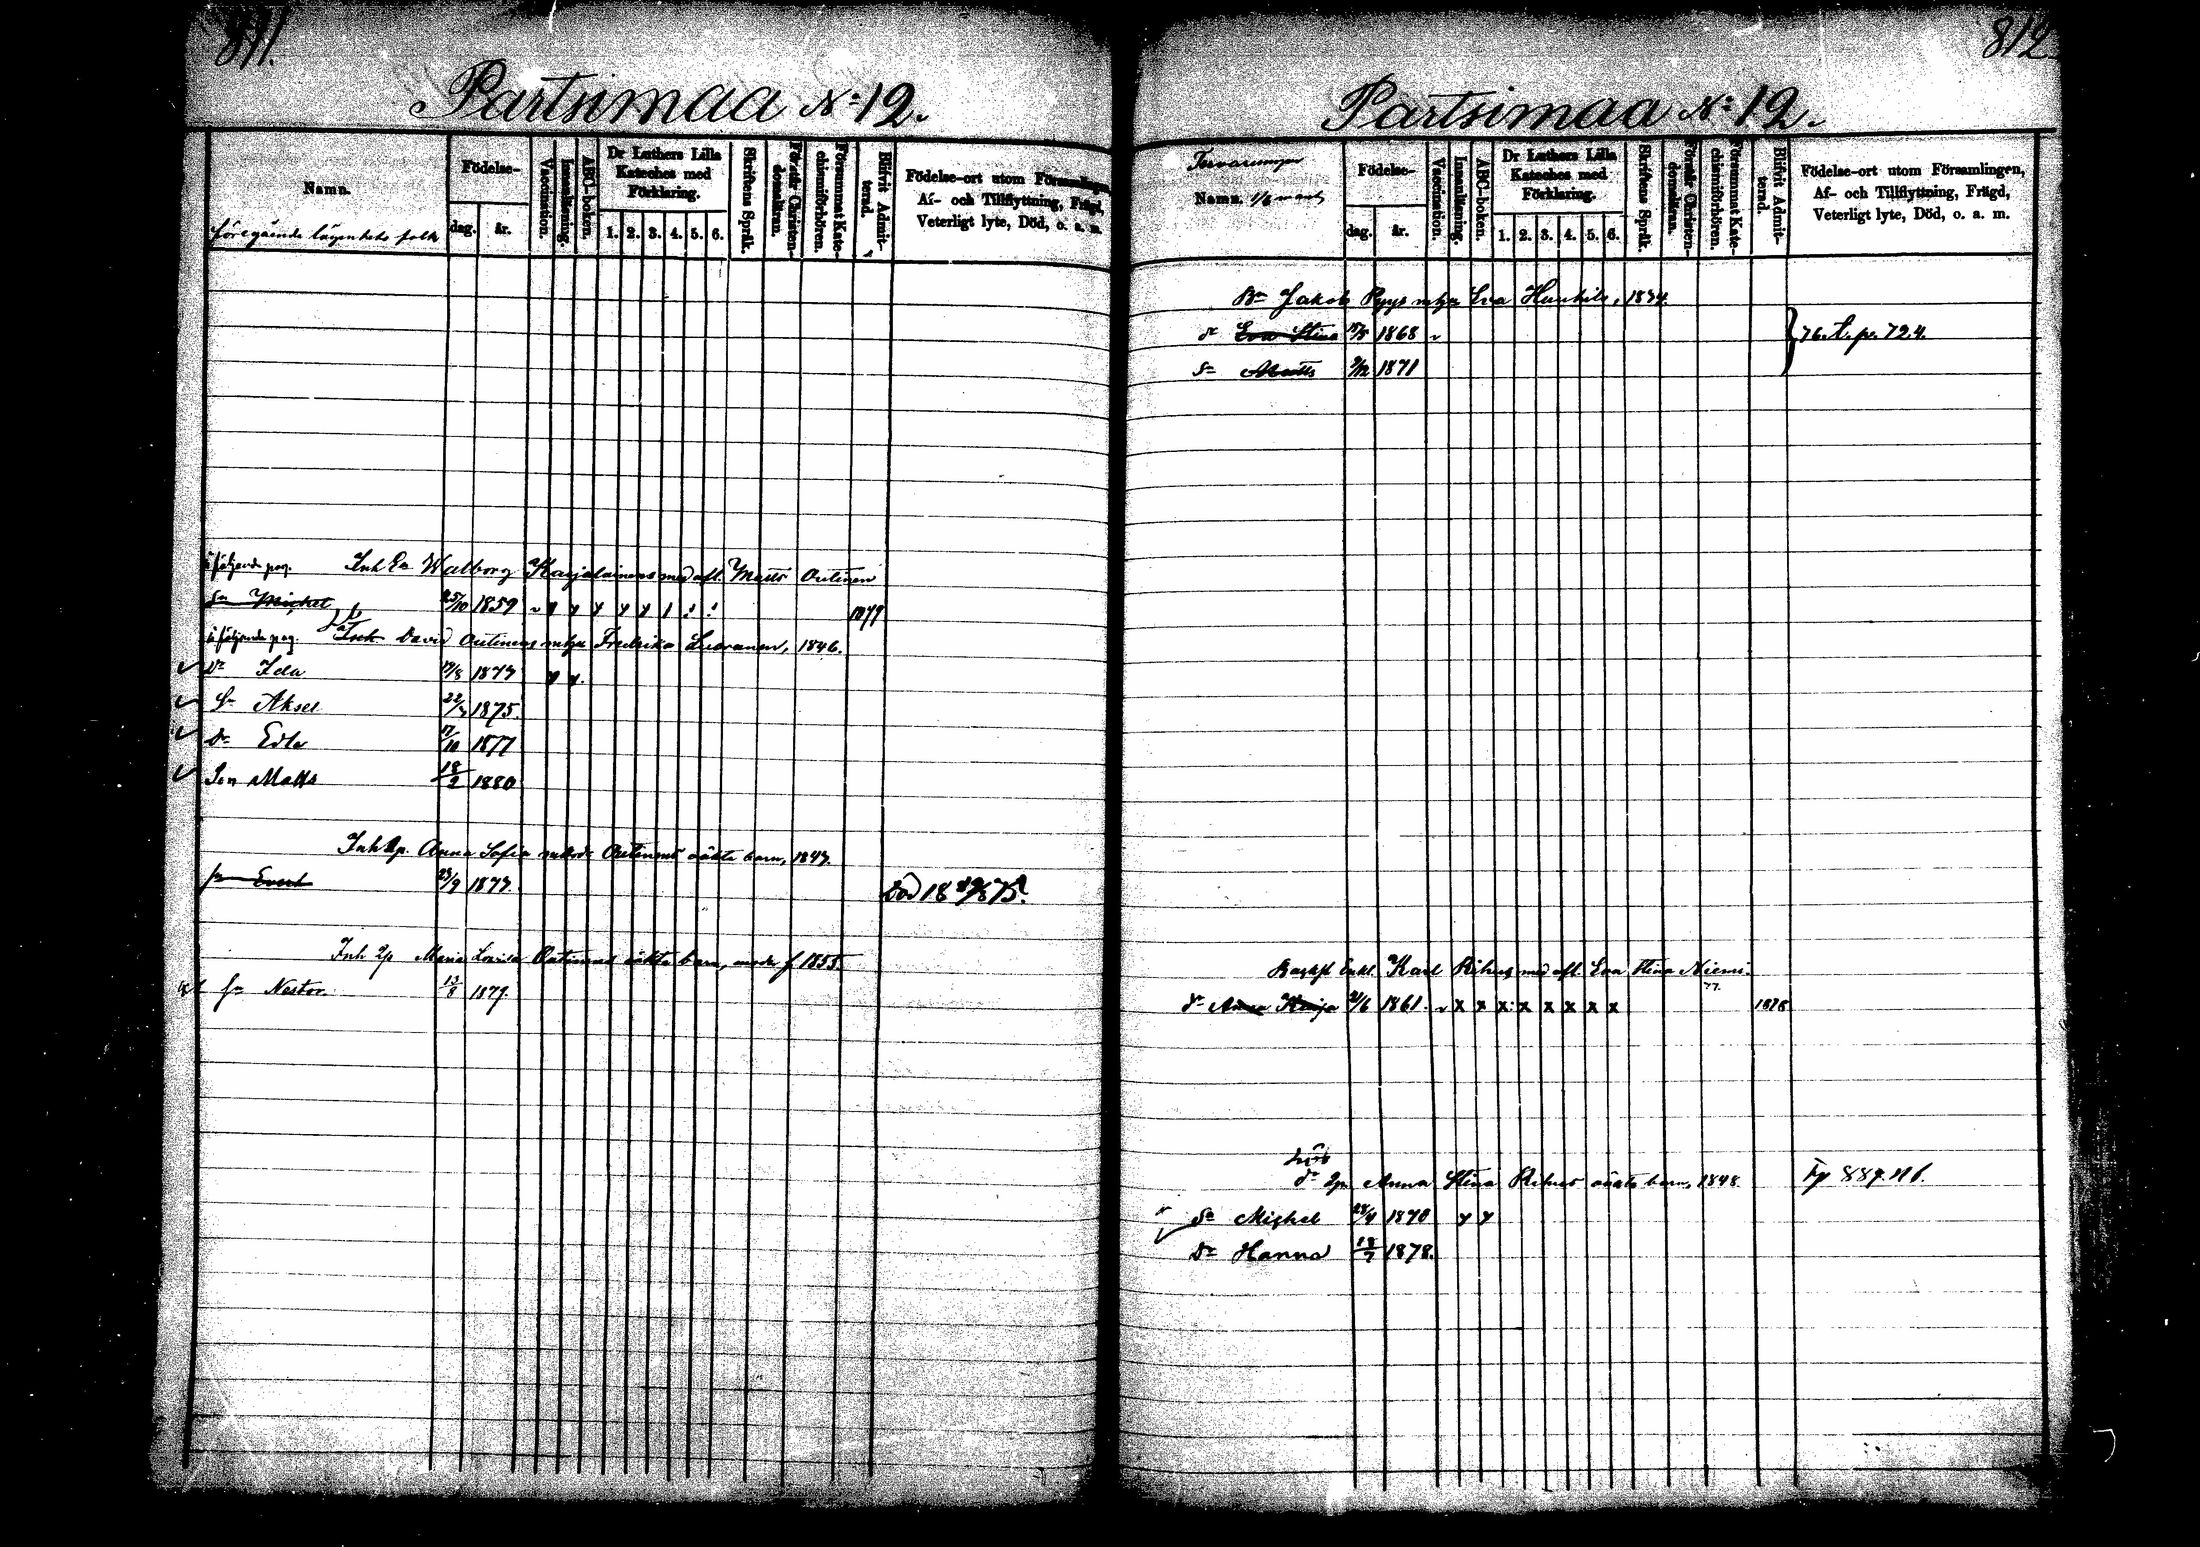 811.
Partsimaa No 12.
Namn.
föregående lägenhets folk
Födelse-
dag. år.
Vaccination.
Innanläsning.
ABC-boken.
Dr Luthers Lilla Kateches med Förklaring.
1. 2. 3. 4. 5. 6.
Skriftens Språk.
Förstår Christendomsläran.
Försummat Katechismiförhören.
Blifvit Admitterad.
Födelse-ort utom Församlingen,
Af- och Tillflyttning, Frägd,
Veterligt lyte, Död, o. a. m.
å följande pag. Inh Ea Walborg Karjalainens med afl. Matts Outinen
Sn Michel 25/10 1859 1877
å följande pag. Inh David Outinens m hu Fredrika Luoranen, 1846.
Dr Ida 17/8 1873
Sn Aksel 22/3 1875.
Dr Edla 17/10 1877
Son Matts 18/2 1880
Inh Qp. Anna Sofia Outinens oäkta barn, 1847.
Sn Evert 23/9 1873. Död 18 75.
Inh Qp Maria Lovisa Outinens oäkta barn, moder f 1855.
Sn Nestor. 13/8 1879.
812
Partsimaa No 12.
Namn.
Födelse-
dag. år.
Vaccination.
Innanläsning.
ABC-boken.
Dr Luthers Lilla Kateches med Förklaring.
1. 2. 3. 4. 5. 6.
Skriftens Språk.
Förstår Christendomsläran.
Försummat Katechismiförhören.
Blifvit Admitterad.
Födelse-ort utom Församlingen,
Af- och Tillflyttning, Frägd,
Veterligt lyte, Död, o. a. m.
Bn Jakob Pyys m hu Eva Hankila, 1834.
dr Eva Stina 1868 76. t. p. 724.
Sn Matts 9/12 1871
Enkl. Karl Rihus med afl. Eva Stina Niemi.
77.
dr Anna Kaija 21/6 1861. x x x x x x x x 1878
dr Qp Anna Stina Rihus oäkta barn, 1848. Fp 887. N 6.
Sn Michel 28/4 1870
Dr Hanna 18/7 1878.